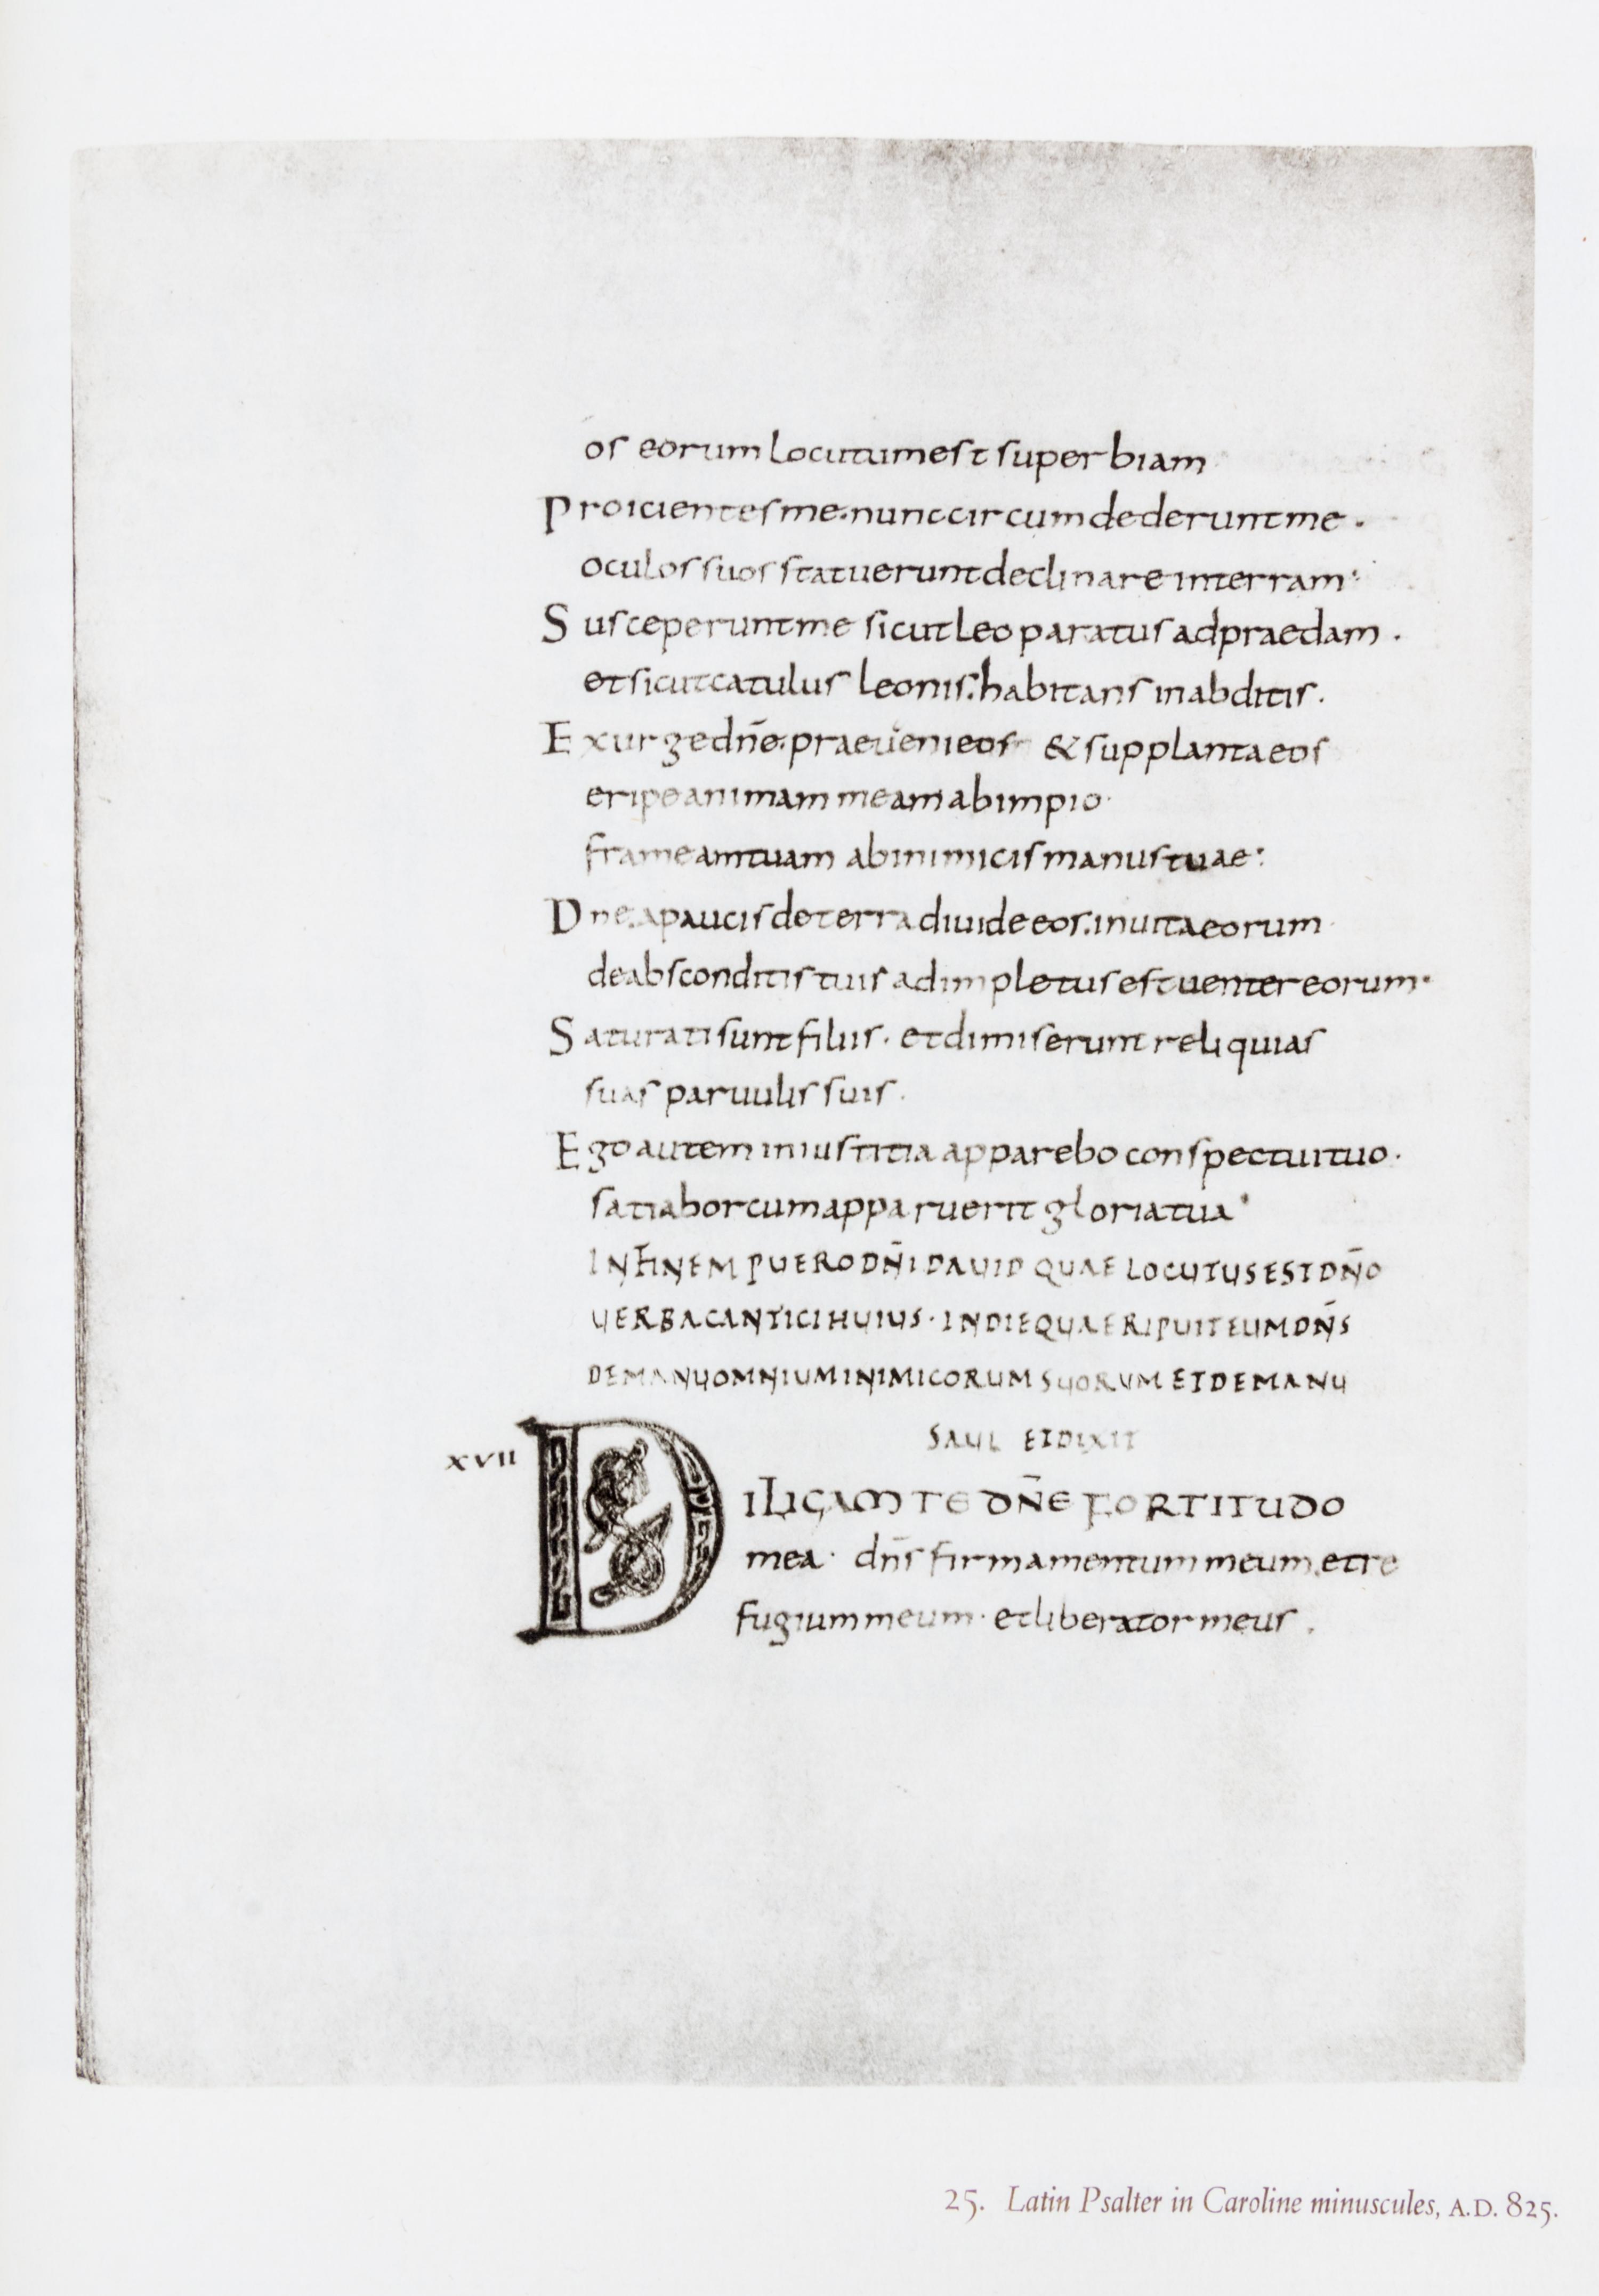 os eorum locutum est superbiam
Proicientes me. nunc circumdederunt me.
oculos suos statuerunt declinare in terram:
Susceperunt me sicut leo paratus ad praedam.
et sicut catulus leonis. habitans in abditis.
Exurge dñe. praeveni eos & supplanta eos
eripe animam meam ab impio.
frameam tuam ab inimicis manus tuae:
Dne. a paucis de terra divide eos. in vita eorum
de absconditis tuis adimpletus est venter eorum.
Saturati sunt filiis. et dimiserunt reliquias
suas parvulis suis.
Ego autem in iustitia apparebo conspectui tuo.
satiabor cum apparuerit gloria tua.
IN FINEM PUERO DÑI DAUID QUAE LOCUTUS EST DÑO
UERBA CANTICI HUIUS. IN DIE QUA ERIPUIT EUM DÑS
DE MANU OMNIUM INIMICORUM SUORUM ET DE MANU
SAUL ET DIXIT
XVII
DILIGAM TE DÑE FORTITUDO
mea. dñs firmamentum meum. et re
fugium meum. et liberator meus.
25. Latin Psalter in Caroline minuscules, A.D. 825.